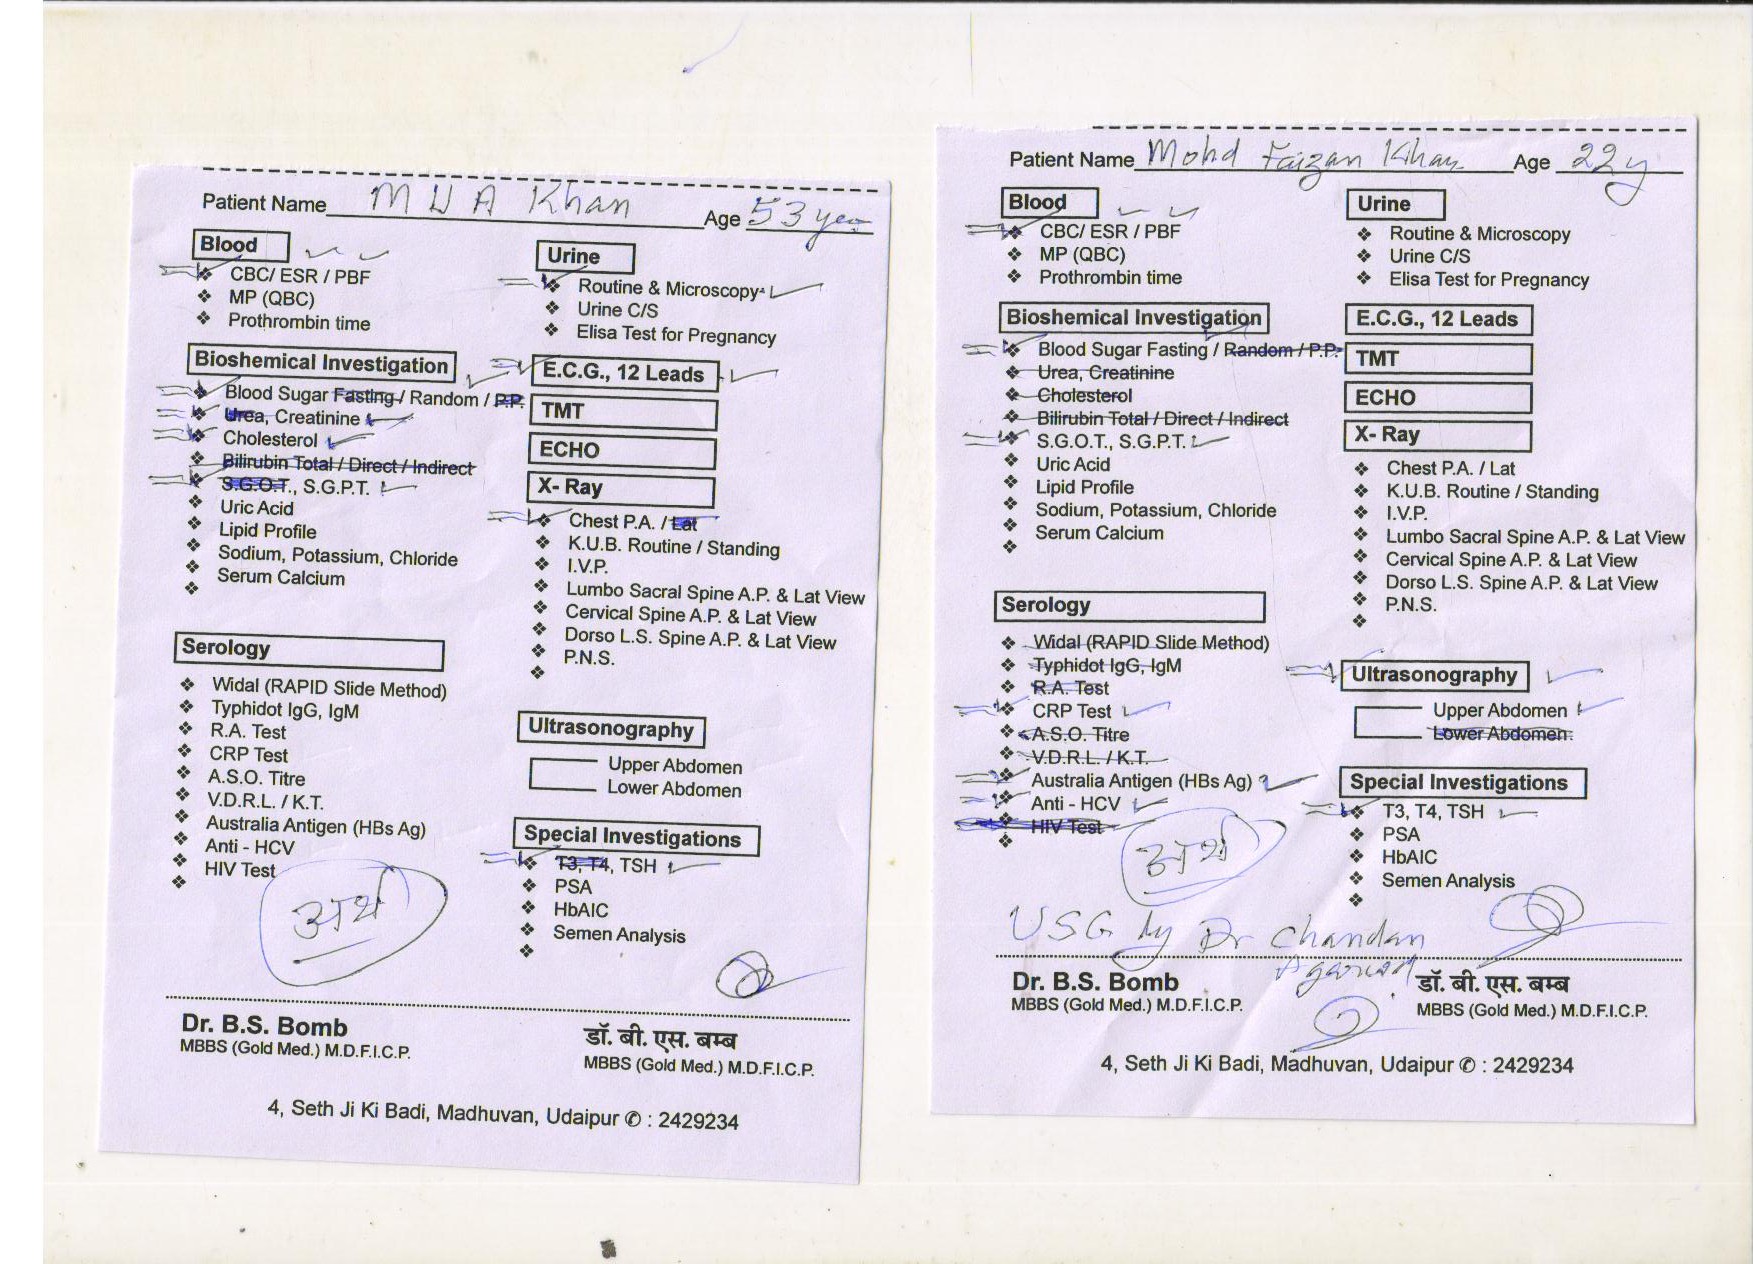 Patient Name M U A Khan Age 53 yes
Blood
CBC/ ESR / PBF
MP (QBC)
Prothrombin time
Bioshemical Investigation
Blood Sugar Fasting / Random / P.P.
Urea, Creatinine
Cholesterol
Bilirubin Total / Direct / Indirect
S.G.O.T., S.G.P.T.
Uric Acid
Lipid Profile
Sodium, Potassium, Chloride
Serum Calcium
Serology
Widal (RAPID Slide Method)
Typhidot IgG, IgM
R.A. Test
CRP Test
A.S.O. Titre
V.D.R.L. / K.T.
Australia Antigen (HBs Ag)
Anti - HCV
HIV Test
Urine
Routine & Microscopy
Urine C/S
Elisa Test for Pregnancy
E.C.G., 12 Leads
TMT
ECHO
X- Ray
Chest P.A. / Lat
K.U.B. Routine / Standing
I.V.P.
Lumbo Sacral Spine A.P. & Lat View
Cervical Spine A.P. & Lat View
Dorso L.S. Spine A.P. & Lat View
P.N.S.
Ultrasonography
Upper Abdomen
Lower Abdomen
Special Investigations
T3, T4, TSH
PSA
HbAIC
Semen Analysis
अर्थ
Dr. B.S. Bomb
MBBS (Gold Med.) M.D.F.I.C.P.
डॉ. बी. एस. बम्ब
MBBS (Gold Med.) M.D.F.I.C.P.
4, Seth Ji Ki Badi, Madhuvan, Udaipur ✆ : 2429234
Patient Name Mohd Faizan Khan Age 22y
Blood
CBC/ ESR / PBF
MP (QBC)
Prothrombin time
Bioshemical Investigation
Blood Sugar Fasting / Random / P.P.
Urea, Creatinine
Cholesterol
Bilirubin Total / Direct / Indirect
S.G.O.T., S.G.P.T.
Uric Acid
Lipid Profile
Sodium, Potassium, Chloride
Serum Calcium
Serology
Widal (RAPID Slide Method)
Typhidot IgG, IgM
R.A. Test
CRP Test
A.S.O. Titre
V.D.R.L. / K.T.
Australia Antigen (HBs Ag)
Anti - HCV
HIV Test
Urine
Routine & Microscopy
Urine C/S
Elisa Test for Pregnancy
E.C.G., 12 Leads
TMT
ECHO
X- Ray
Chest P.A. / Lat
K.U.B. Routine / Standing
I.V.P.
Lumbo Sacral Spine A.P. & Lat View
Cervical Spine A.P. & Lat View
Dorso L.S. Spine A.P. & Lat View
P.N.S.
Ultrasonography
Upper Abdomen
Lower Abdomen
Special Investigations
T3, T4, TSH
PSA
HbAIC
Semen Analysis
अर्थ
USG by Dr Chandan
Agarwal
Dr. B.S. Bomb
MBBS (Gold Med.) M.D.F.I.C.P.
डॉ. बी. एस. बम्ब
MBBS (Gold Med.) M.D.F.I.C.P.
4, Seth Ji Ki Badi, Madhuvan, Udaipur ✆ : 2429234